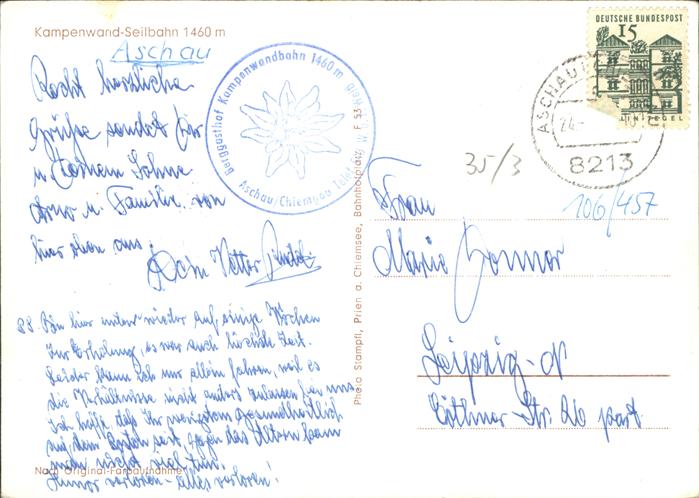 Kampenwand-Seilbahn 1460 m
Aschau
Recht herzliche
Grüße sendet Dir
u. Deinem Sohne
u. Familie von
hier oben aus!
Dein Vetter
Berggasthof Kampenwandbahn 1460 m
Aschau/Chiemgau
DEUTSCHE BUNDESPOST
15
ASCHAU
8213
35/3
106/457
Frau
Marie
Leipzig-N
Str. 26 part.
PS. Bin hier unten wieder auf einige Wochen
zur Erholung, es war auch höchste Zeit.
Leider kann ich nur allein fahren, weil es
die Verhältnisse nicht anders zulassen bei uns.
Ich hoffe, daß Ihr wenigstens gesundheitlich
auf dem Posten seit, gegen das Altern kann
man nicht viel tun.
Humor verloren - alles verloren!
Nach Original-Farbaufnahme
Photo Stampfl, Prien a. Chiemsee, Bahnhofplatz F 53